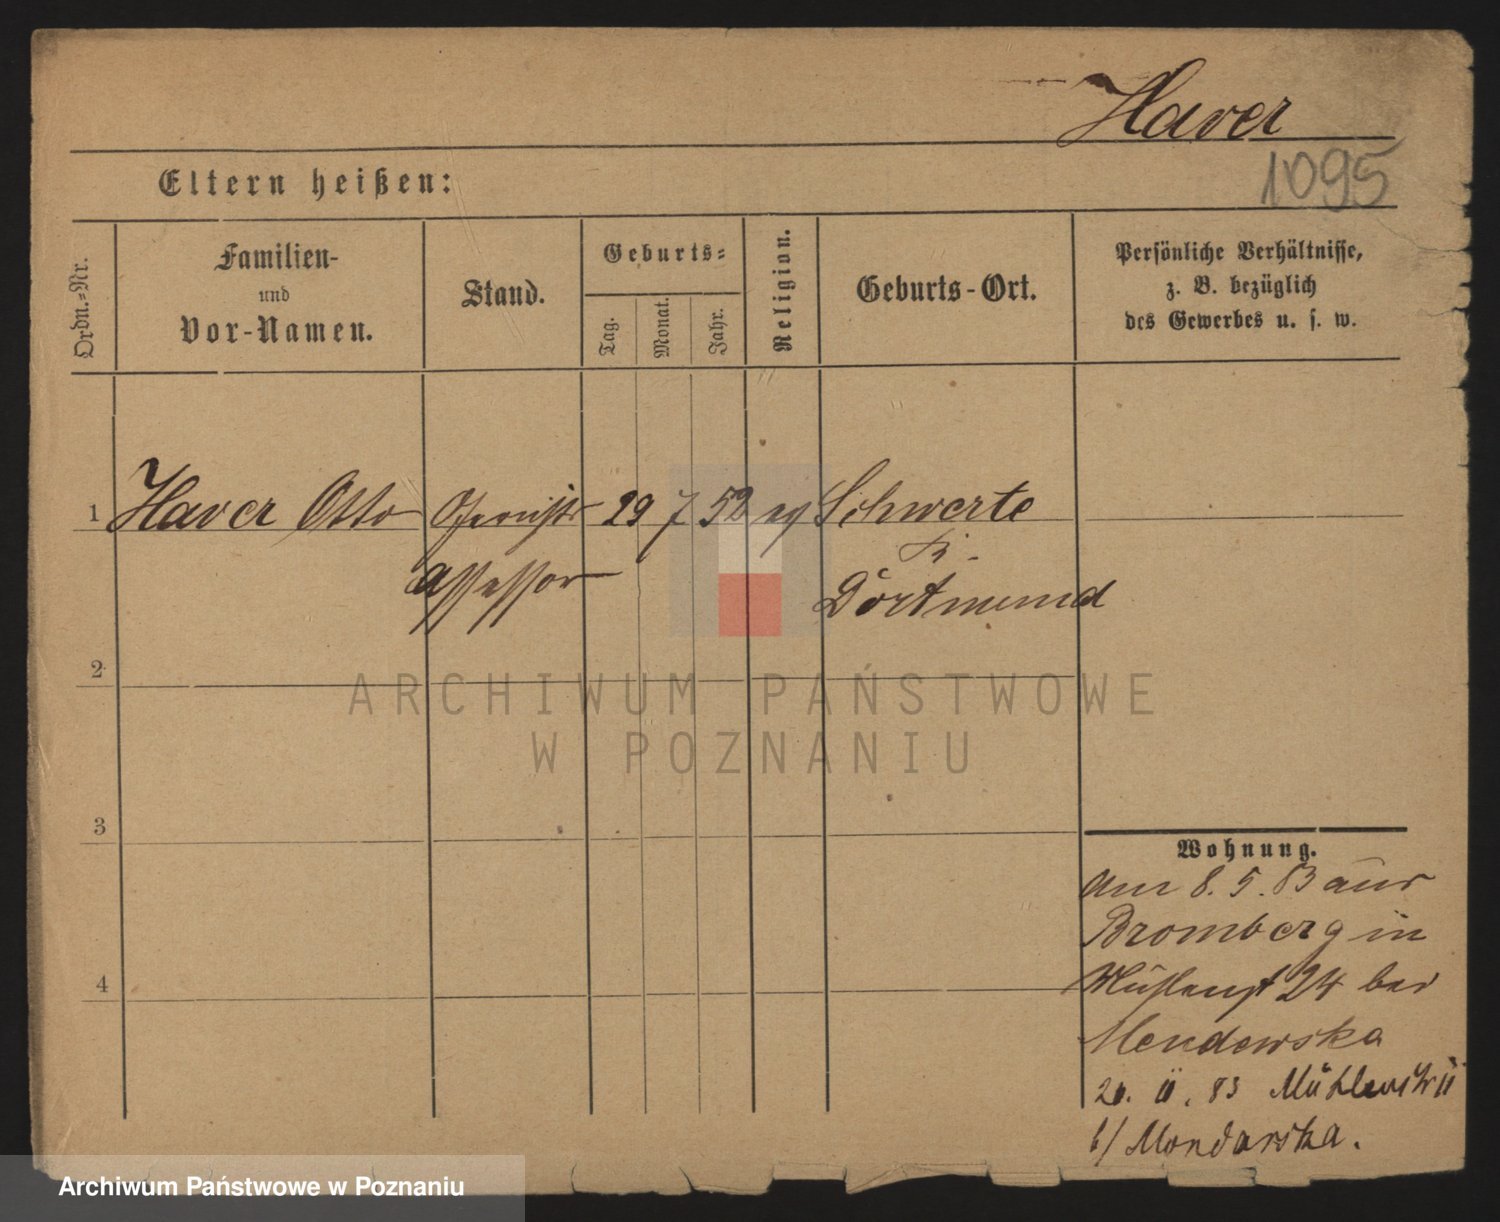 Haver
1095
Eltern heißen:
Ordn.=Nr.
Familien-
und
Vor-Namen.
Stand.
Geburts=
Tag.
Monat.
Jahr.
Religion.
Geburts-Ort.
Persönliche Verhältnisse,
z. B. bezüglich
des Gewerbes u. s. w.
1 Haver Otto Gerichts 29 7 52 eg Schwerte
Assessor
Dortmund
2
3
4
Wohnung.
am 8. 5. 83 aus
Bromberg in
24 bei
Mendewska
20. 11. 83 Mühlenstr 11
b/ Mondarska.
ARCHIWUM PAŃSTWOWE
W POZNANIU
Archiwum Państwowe w Poznaniu